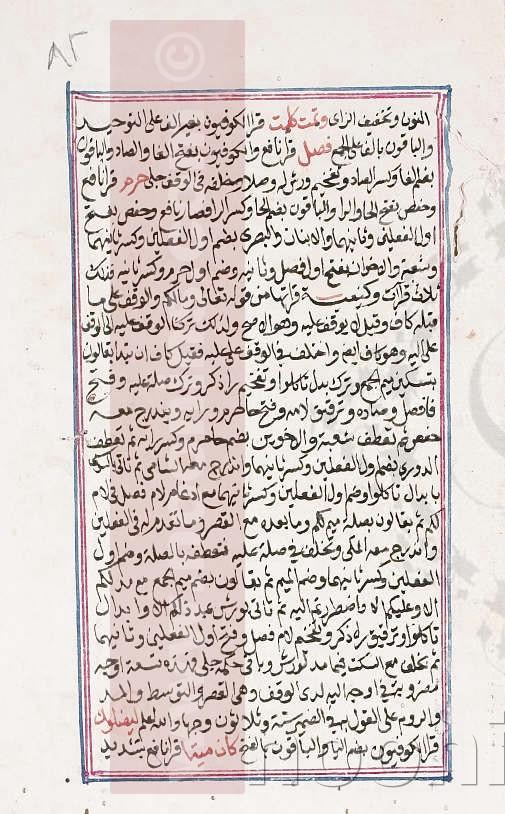 ٨٢
النون وتخفيف الزاى وتمت كلمت قرا الكوفيون بغير الف على التوحيد
والباقون بالف على الجمع فصل قرا نافع والكوفيون بفتح الفا والصاد والباقون
بضم الفا وكسر الصاد وتفخيم ورش له وصلا مطلقه فى الوقف جلى حرم قرا نافع
وحفص بفتح الحا والرا والباقون بضم الحا وكسر الرا فصار نافع وحفص بفتح
اول الفعلين وثانيهما والابنان والبصرى بضم اول الفعلين وكسر ثانيهما
وشعبة والاخوان بفتح اول فصل وثانيه وضم اول حرم وكسر ثانيه فتلك
ثلاث قرآت وكيفية قراتها من قوله تعالى ومالكم والوقف على ما
قبله كاف وقيل لا يوقف عليه وهو الاصح ولذلك تركنا الوقف عليه الى الوقف
على اليه وهو كاف ايضا واختلف فى الوقف على عليه فقيل كاف ان تبدا بقالون
بتسكين ميم الجمع وترك بدل تاكلوا وتفخيم را ذكر وترك صلة عليه وفتح
فا فصل وصاده وترقيق لامه وفتح حا حرم ورايه ويندرج معه
حفص ثم تعطف شعبة والاخوين بضم حا حرم وكسر رائه ثم تعطف
الدورى بضم اول الفعلين وكسر ثانيهما واندرج معه الشامى ثم تاتى بالسوسى
بابدال تاكلوا وضم اول الفعلين وكسر ثانيهما مع ادغام لام فصل فى لام
لكم ثم بقالون بصلة ميم لكم وما بعده مع القصر وما تقدم له فى الفعلين
واندرج معه المكى وتخلف فى صلة عليه فتعطفه بالصلة وضم اول
الفعلين وكسر ثانيهما وضم الميم ثم بقالون بضم ميم الجمع مع مد لكم
الا وعليكم الا واضطررتم اليه ثم تاتى بورش بمد ذلك كله وابدال
تاكلوا وترقيق را ذكر وتفخيم لام فصل وفتح اول الفعلين وثانيهما
ثم بخلف مع السكت فيما مد لورش وباقى حكمه جلى فهذه تسعة اوجه
مضروبة فى اوجه اليه لدى الوقف وهى القصر والتوسط والمد
والروم على القول به فى الضمير ستة وثلاثون وجها والله اعلم ليضلون
قرا الكوفيون بضم اليا والباقون بالفتح كان ميتا قرا نافع بتشديد